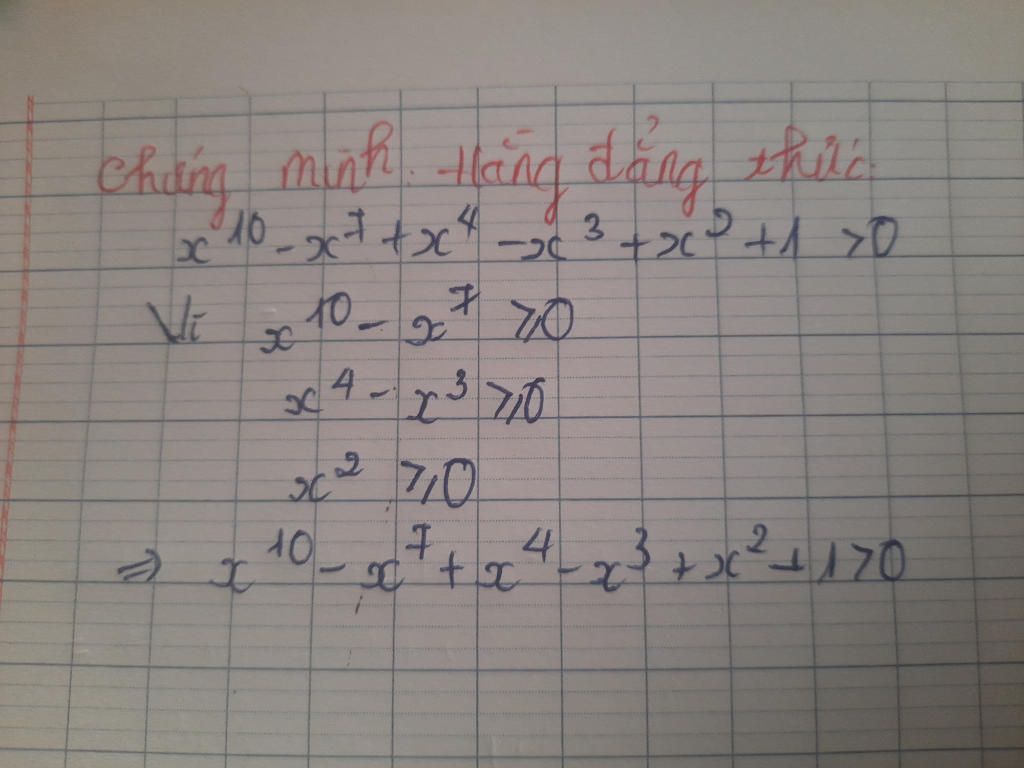 Chứng minh. Hằng đẳng thức.
x^10 - x^7 + x^4 - x^3 + x^2 + 1 > 0
Vì x^10 - x^7 ⩾ 0
x^4 - x^3 ⩾ 0
x^2 ⩾ 0
⇒ x^10 - x^7 + x^4 - x^3 + x^2 + 1 > 0